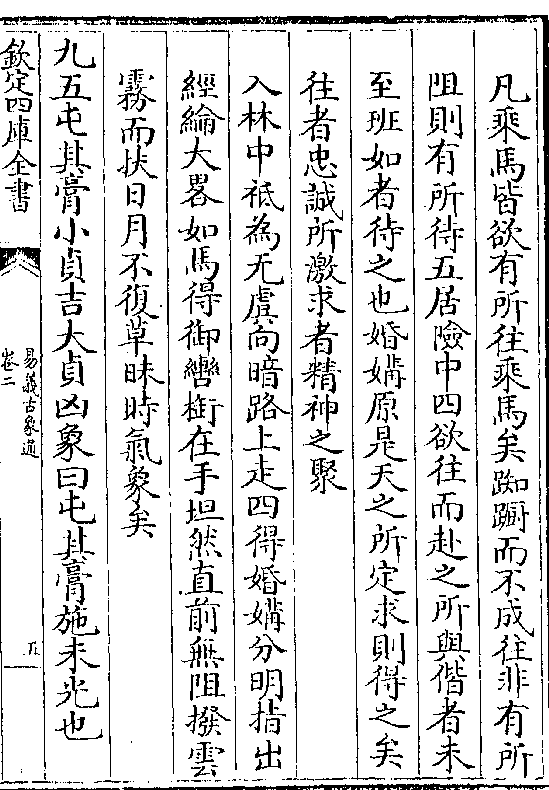 凡乘馬皆欲有所往乘馬矣踟蹰而不成往非有所
阻則有所待五居險中四欲往而赴之所與偕者未
至班如者待之也婚媾原是天之所定求則得之矣
往者忠誠所激求者精神之聚
入林中衹為无虞向暗路上走四得婚媾分明指出
經綸大畧如馬得御轡銜在手坦然直前無阻撥雲
霧而扶日月不復草昧時氣象矣
九五屯其膏小貞吉大貞凶象曰屯其膏施未光也
欽定四庫全書
易義古象通
卷二
五